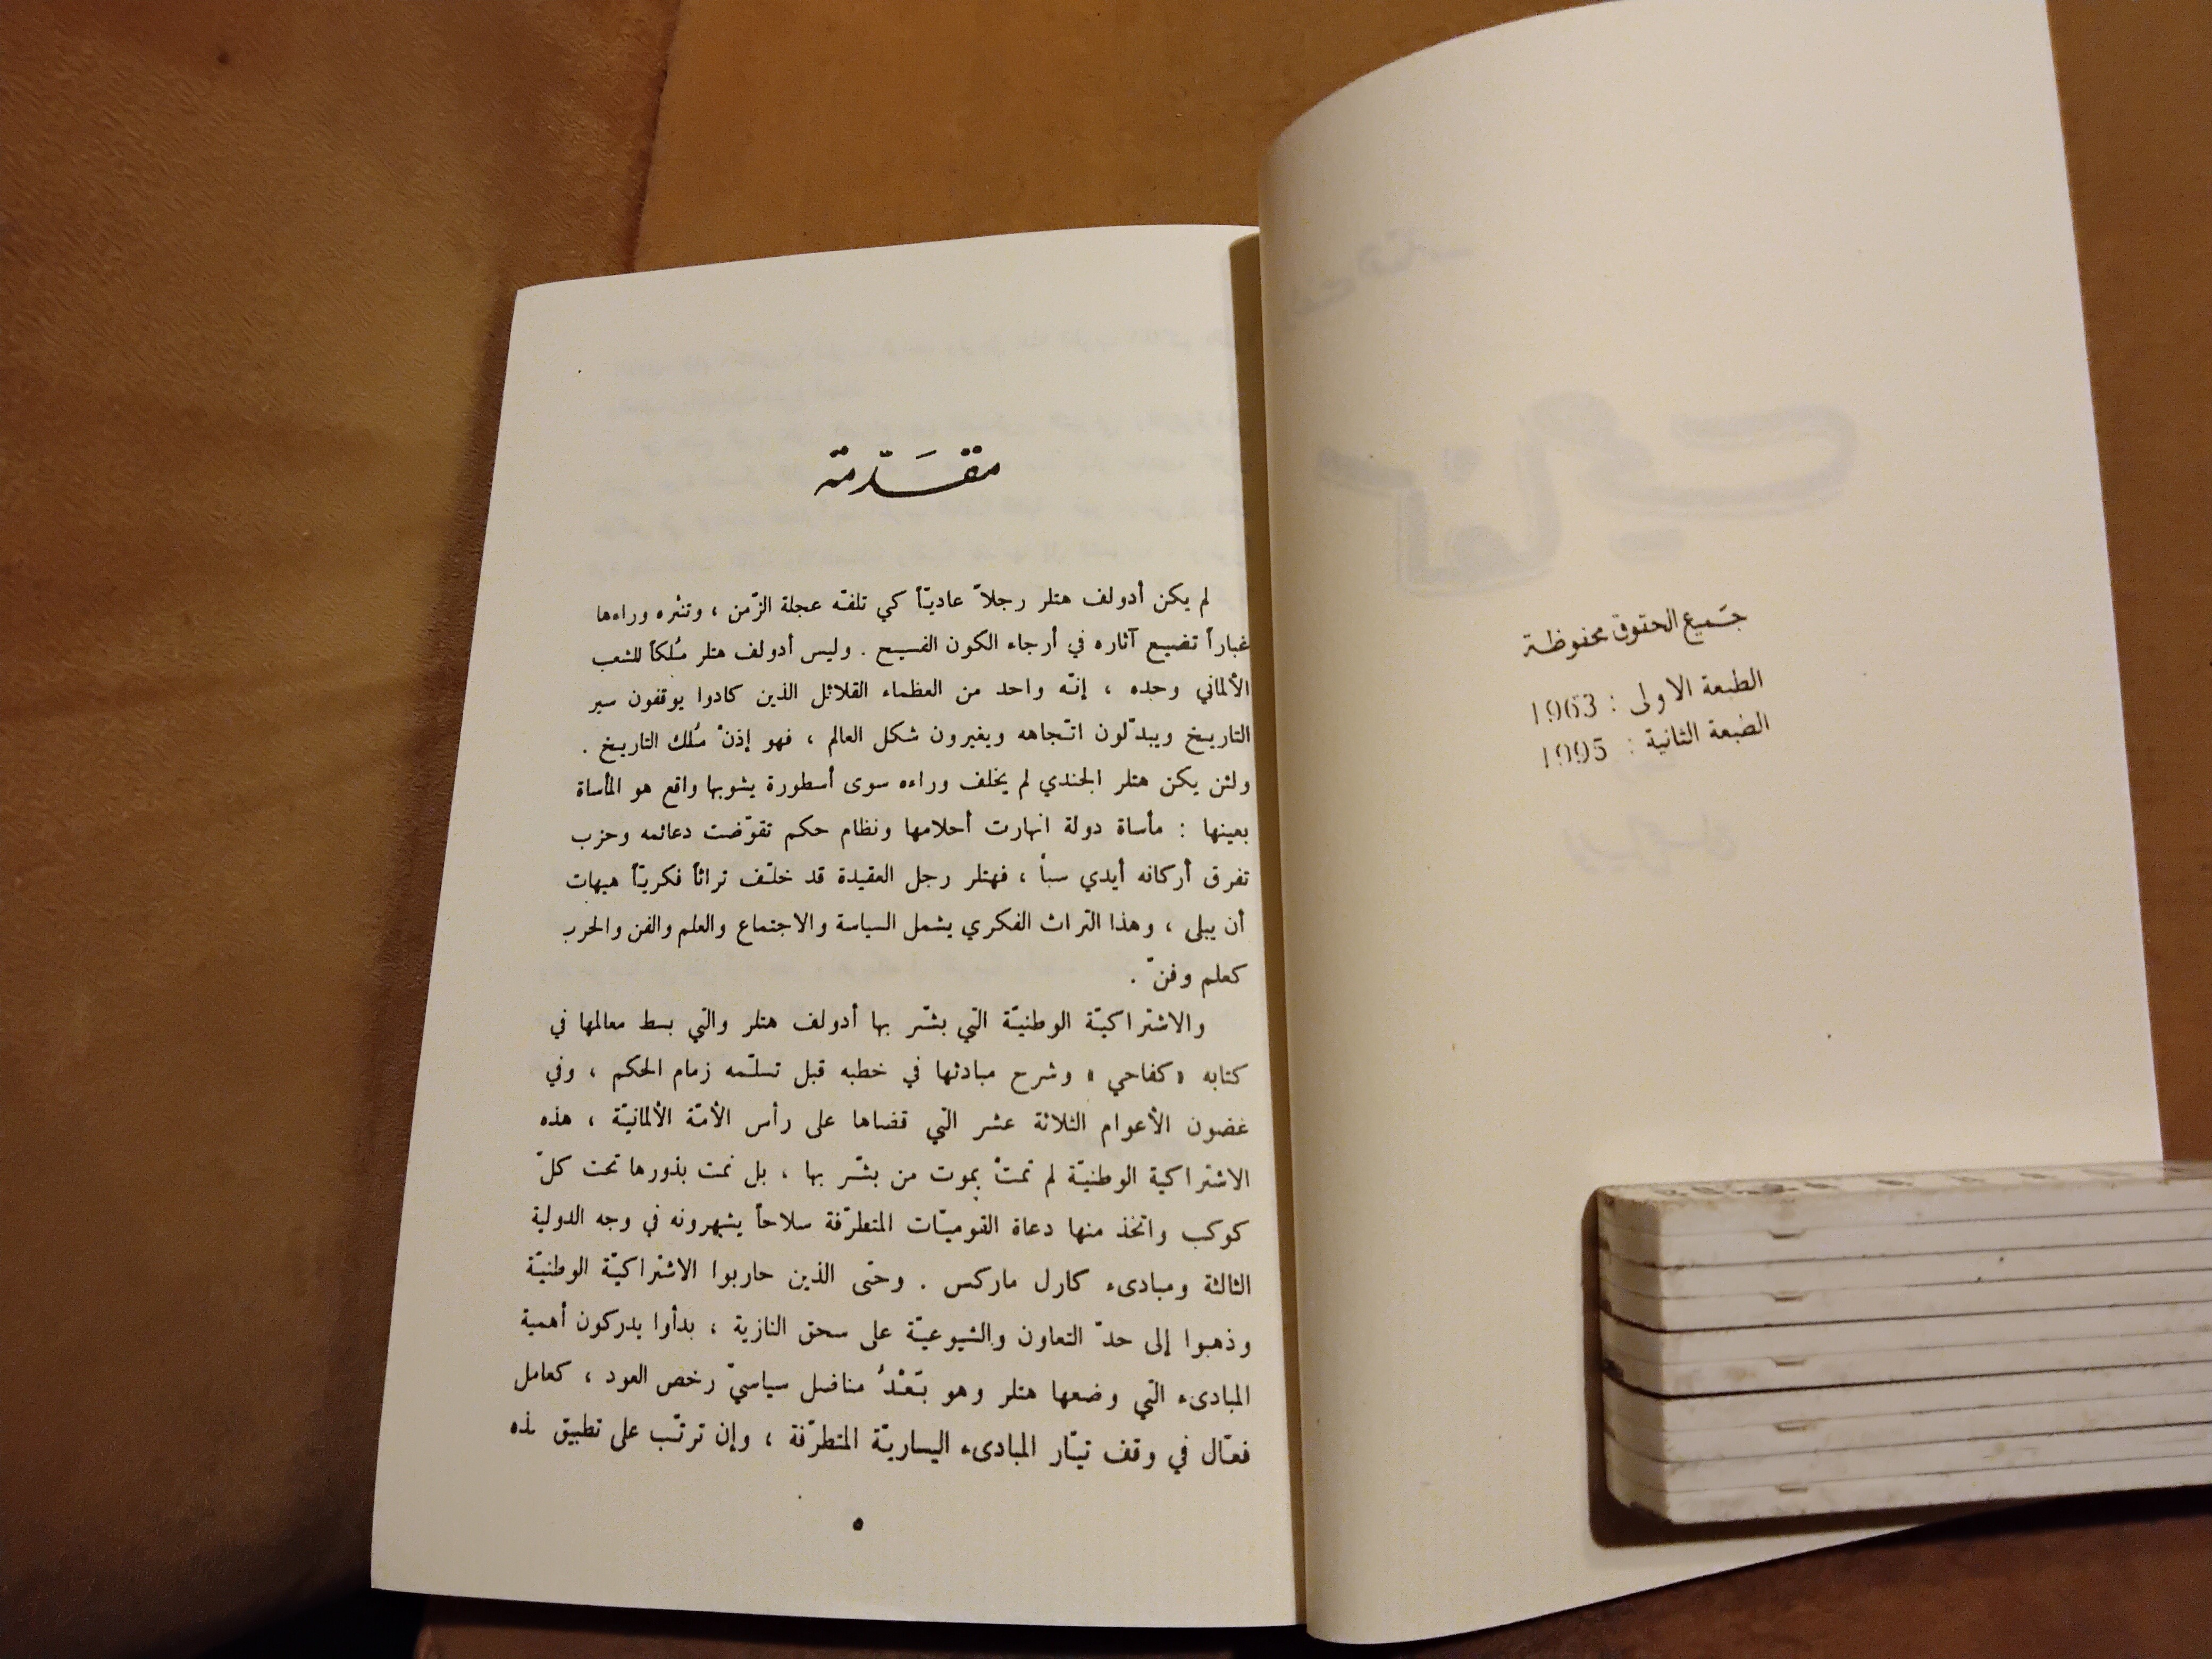 جميع الحقوق محفوظة
الطبعة الاولى : 1963
الطبعة الثانية : 1995
مقدمة
لم يكن أدولف هتلر رجلاً عاديّاً كي تلفّه عجلة الزّمن ، وتنثره وراءها
غباراً تضيع آثاره في أرجاء الكون الفسيح . وليس أدولف هتلر مُلكاً للشعب
الألماني وحده ، إنّه واحد من العظماء القلائل الذين كادوا يوقفون سير
التاريخ ويبدّلون اتّجاهه ويغيرون شكل العالم ، فهو إذنْ مُلك التاريخ .
ولئن يكن هتلر الجندي لم يخلف وراءه سوى أسطورة يشوبها واقع هو المأساة
بعينها : مأساة دولة انهارت أحلامها ونظام حكم تقوّضت دعائمه وحزب
تفرق أركانه أيدي سبأ ، فهتلر رجل العقيدة قد خلّف تراثاً فكريّاً هيهات
أن يبلى ، وهذا التراث الفكري يشمل السياسة والاجتماع والعلم والفن والحرب
كعلم وفنّ .
والاشتراكيّة الوطنيّة التي بشّر بها أدولف هتلر والتي بسط معالمها في
كتابه «كفاحي» وشرح مبادئها في خطبه قبل تسلّمه زمام الحكم ، وفي
غضون الأعوام الثلاثة عشر التي قضاها على رأس الأمّة الألمانيّة ، هذه
الاشتراكية الوطنيّة لم تمتْ بموت من بشّر بها ، بل نمت بذورها تحت كلّ
كوكب واتخذ منها دعاة القوميّات المتطرّفة سلاحاً يشهرونه في وجه الدولية
الثالثة ومبادىء كارل ماركس . وحتى الذين حاربوا الاشتراكيّة الوطنيّة
وذهبوا إلى حدّ التعاون والشيوعيّة على سحق النازية ، بدأوا يدركون أهمية
المبادىء التي وضعها هتلر وهو بَعْدُ مناضل سياسيّ رخص العود ، كعامل
فعّال في وقف تيّار المبادىء اليساريّة المتطرّفة ، وإن ترتّب على تطبيق
٥